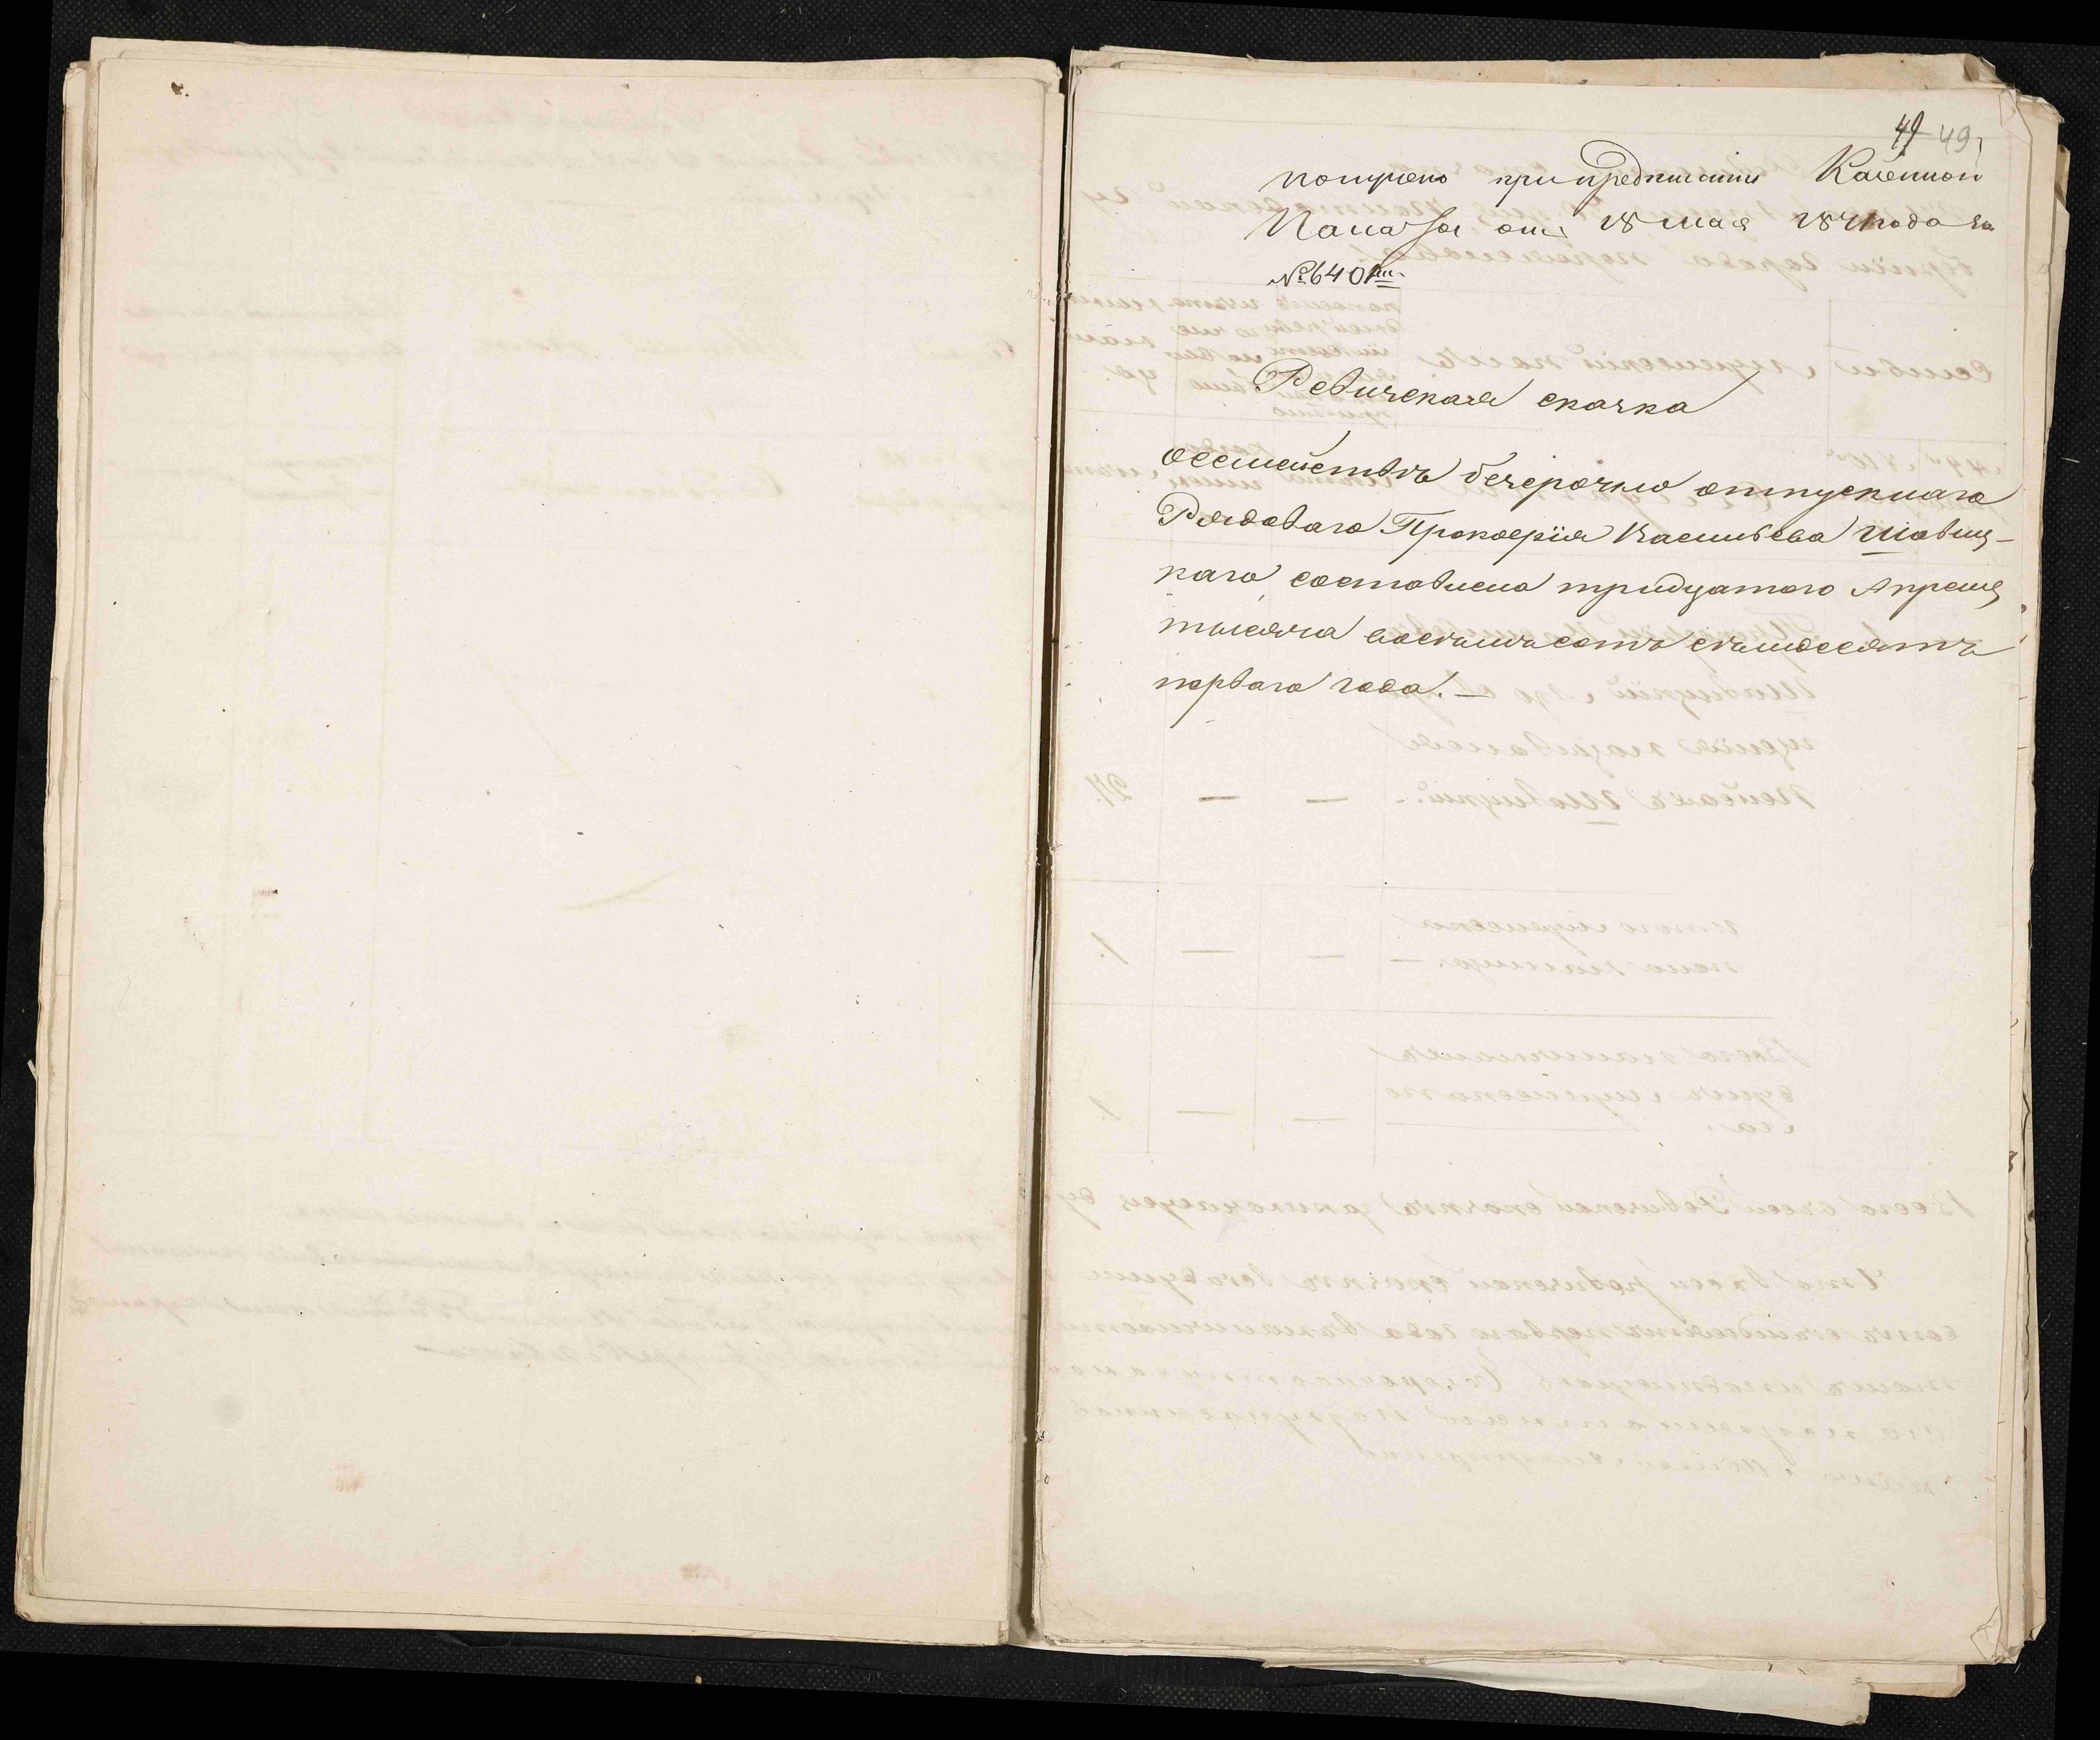 49 49
получено при предписаніи Казенной
Палаты отъ 18 мая 1871 года за
№ 6401мъ
Ревизская сказка
осемействѣ безсрочно отпускнаго
Рядоваго Прокофія Васильева Шавиц-
каго, составлена тридцатаго Апреля
тысяча восемьсотъ семьдесятъ
перваго года. —